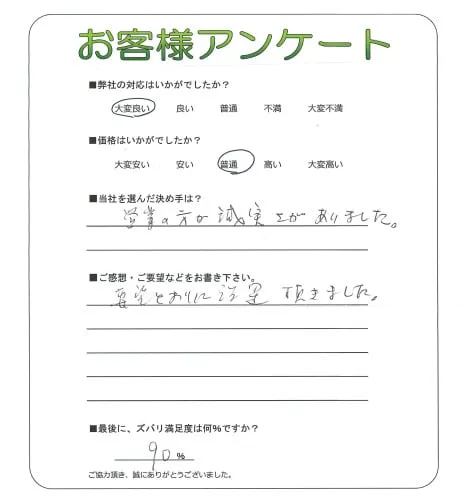 お客様アンケート
■弊社の対応はいかがでしたか?
大変良い 良い 普通 不満 大変不満
■価格はいかがでしたか?
大変安い 安い 普通 高い 大変高い
■当社を選んだ決め手は?
営業の方が誠実さがありました。
■ご感想・ご要望などをお書き下さい。
要望どおりに設置頂きました。
■最後に、ズバリ満足度は何%ですか?
90%
ご協力頂き、誠にありがとうございました。